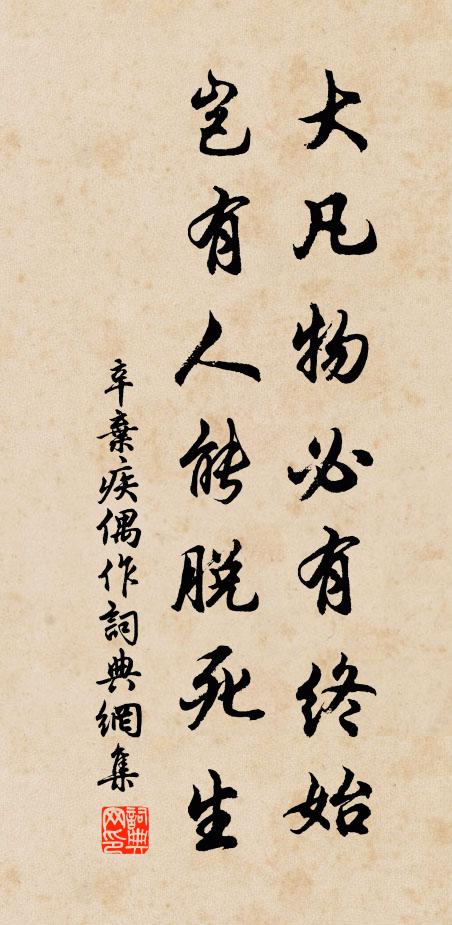 大凡物必有终始
岂有人能脱死生
辛棄疾偶作詞典網集
詞典網印